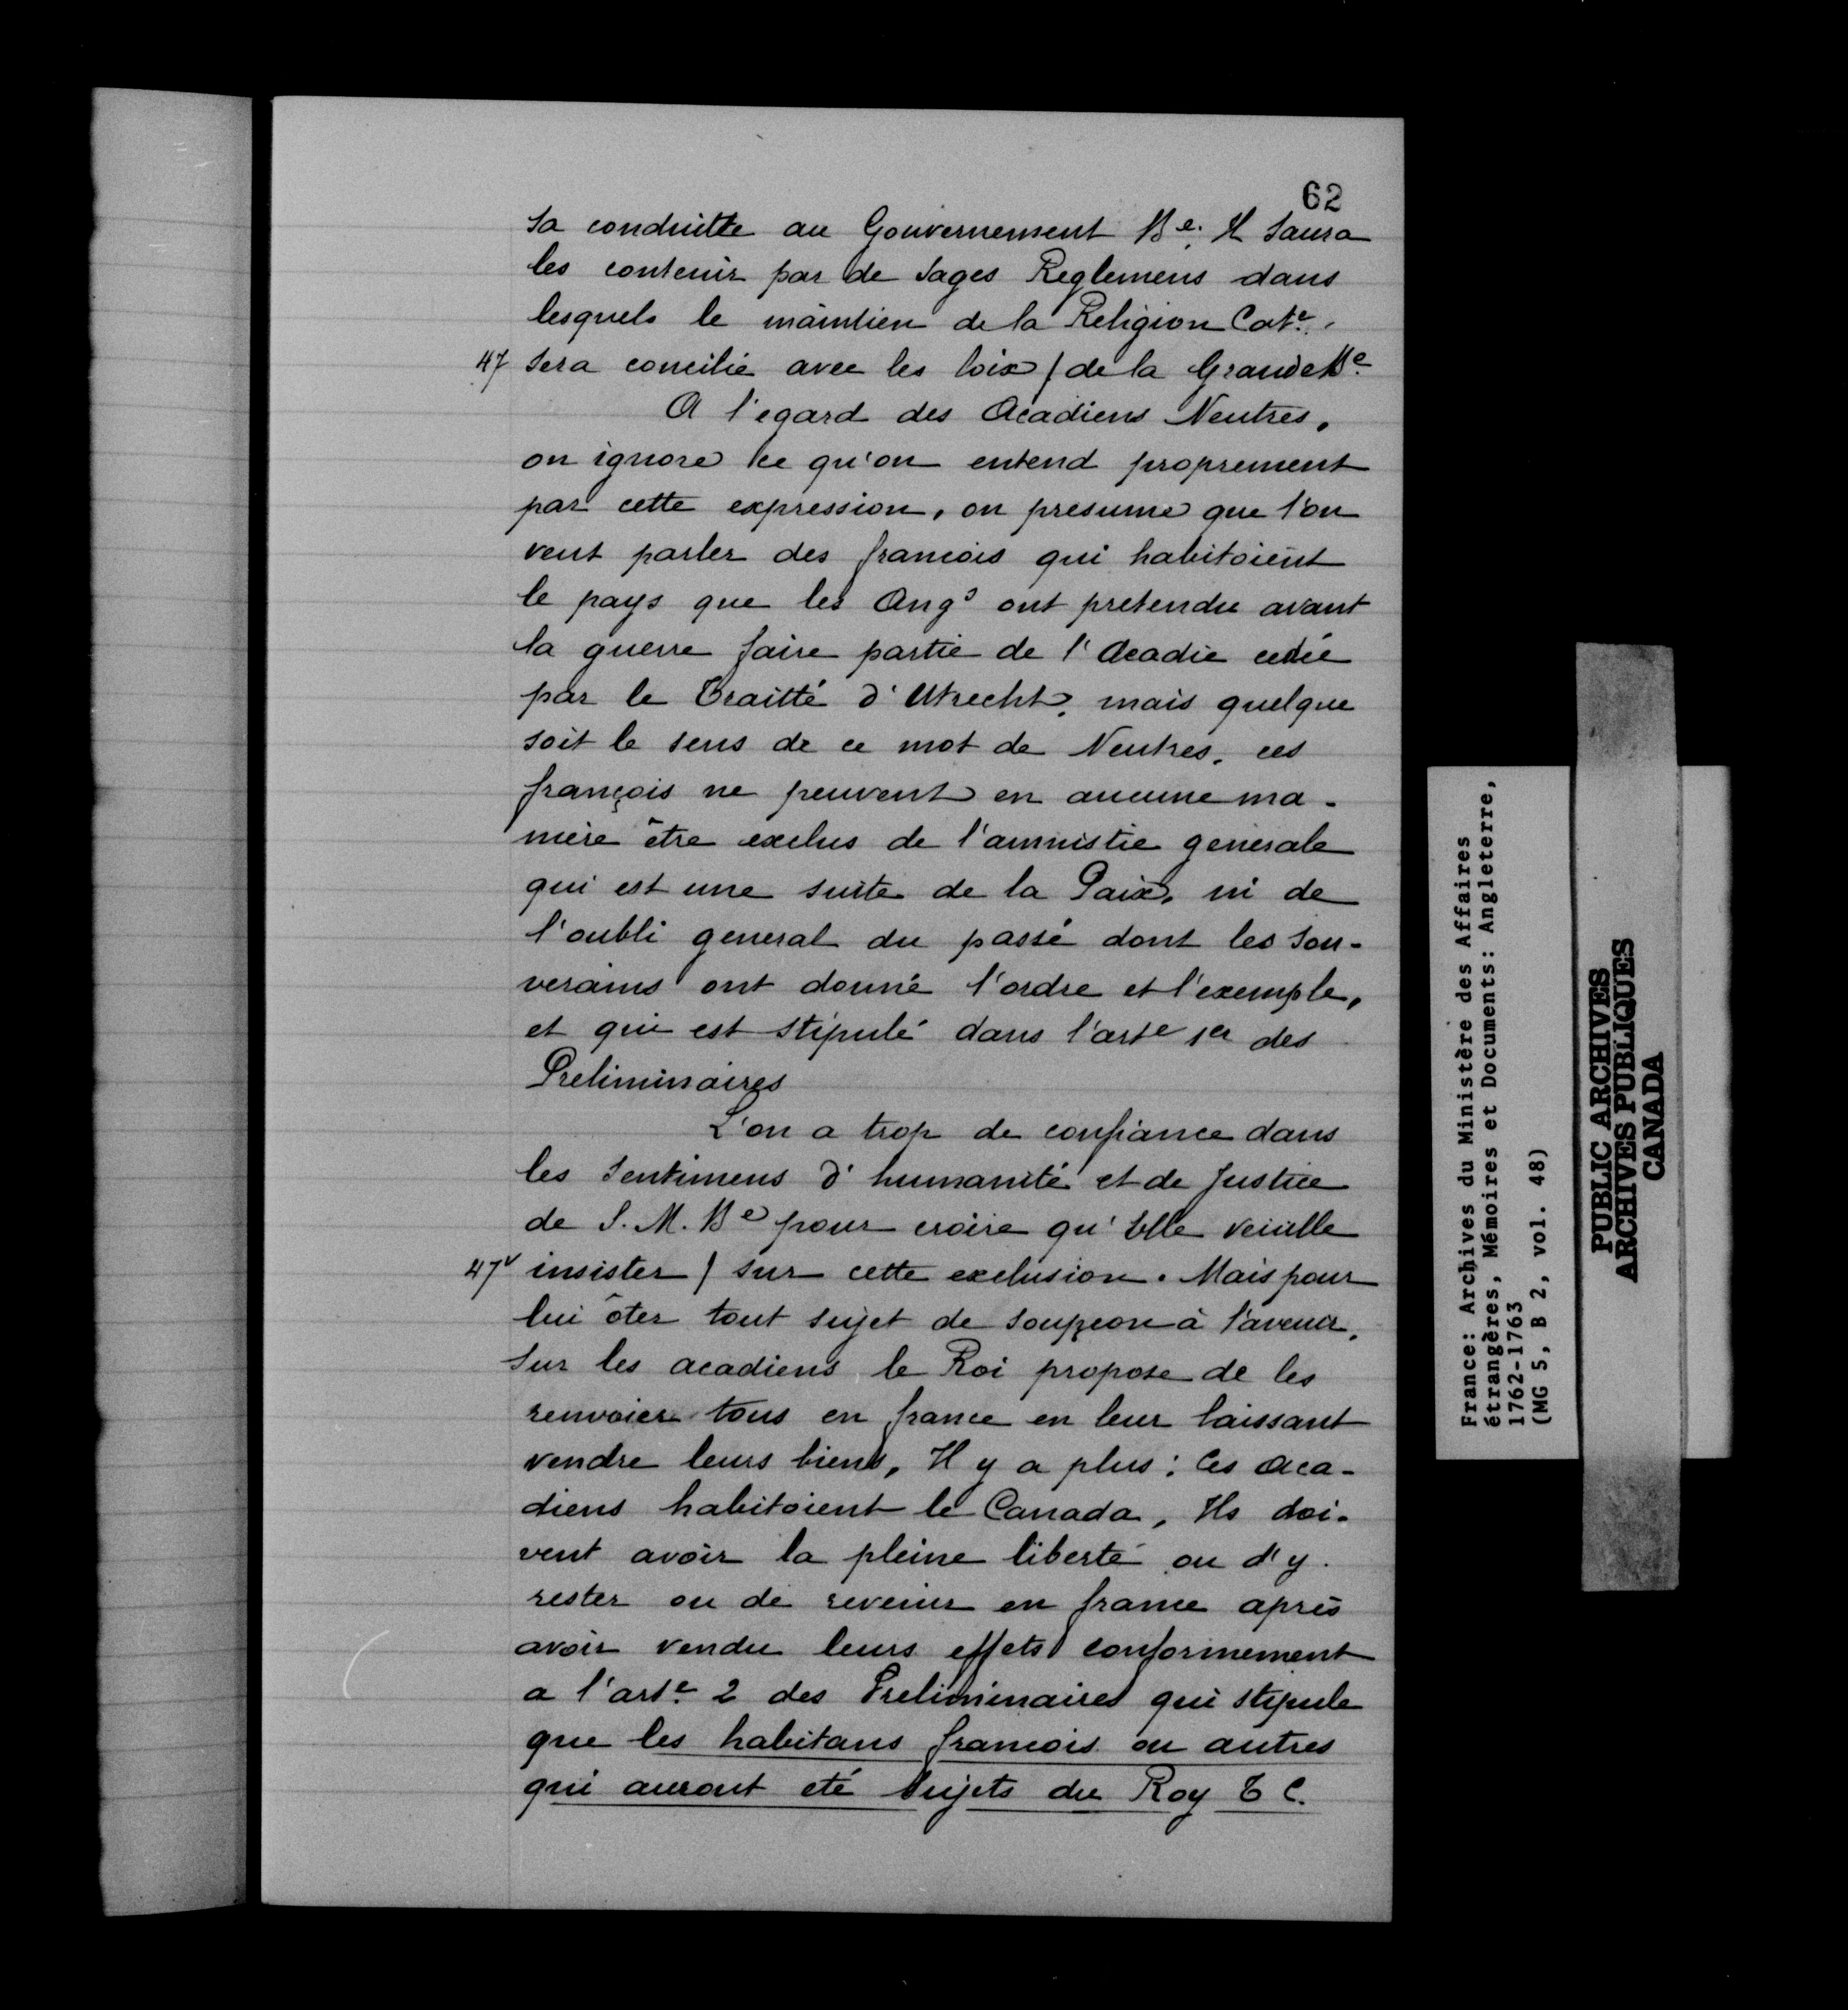 62
Sa conduitte au Gouvernement Be. Il Saura
les contenir par de Sages Reglemens dans
lesquels le maintien de la Religion Cate.
47 Sera concilié avec les loix / de la Grande Be
A l'egard des Acadiens Neutres,
on ignore ce qu'on entend proprement
par cette expression, on presume que l'on
veut parler des francois qui habitoient
le pays que les Angs ont pretendu avant
la guerre faire partie de l'Acadie cedée
par le Traitté d'Utrecht, mais quelque
soit le sens de ce mot de Neutres, ces
françois ne peuvent en aucune ma-
niere être exclus de l'amnistie generale
qui est une suite de la Paix, ni de
l'oubli general du passé dont les Sou-
verains ont donné l'ordre et l'exemple,
et qui est stipulé dans l'arte 1er des
Preliminaires
L'on a trop de confiance dans
les Sentimens d'humanité et de Justice
de S. M. Be pour croire qu'Elle veuille
47v insister / sur cette exclusion. Mais pour
lui ôter tout sujet de soupçon à l'avenir,
Sur les acadiens le Roi propose de les
renvoier tous en france en leur laissant
vendre leurs biens, Il y a plus : Ces Aca-
diens habitoient le Canada, Ils doi-
vent avoir la pleine liberté ou d'y
rester ou de revenir en france après
avoir vendu leurs effets conformement
a l'arte. 2 des Preliminaires qui stipule
que les habitans francois ou autres
qui auront eté Sujets du Roy T C.
France: Archives du Ministère des Affaires
étrangères, Mémoires et Documents: Angleterre,
1762-1763
(MG 5, B 2, vol. 48)
PUBLIC ARCHIVES
ARCHIVES PUBLIQUES
CANADA